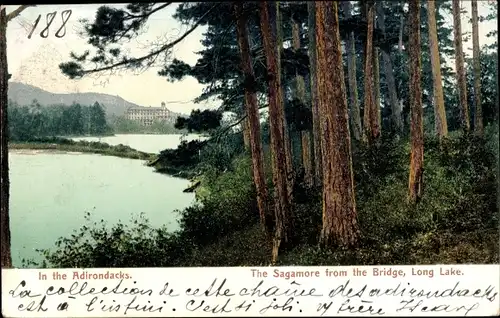 188
In the Adirondacks.
The Sagamore from the Bridge, Long Lake.
La collection de cette chaîne des adirondacks
est à l'istini. C'est si joli. frère Henry